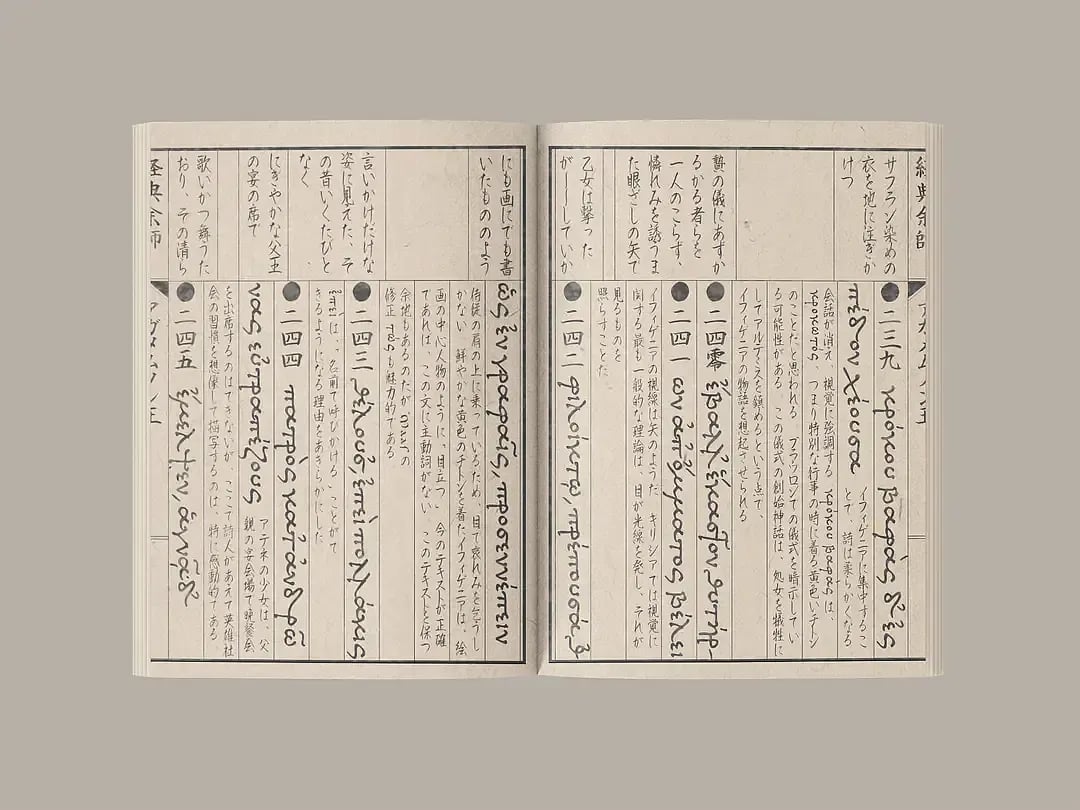 經典余師
サフラン染めの
衣を地に注ぎか
けつ
贄の儀にあずか
るかる者らを
一人のこらず、
憐れみを誘うま
た眼ざしの矢で
乙女は撃った
が――していか
二三九 κρόκου βαφὰς δ' ἐς
πέδον χέουσα
イフィゲニアに集中するこ
とで、詩は柔らかくなる
会話が消え、視覚に強調する κρόκου βαφὰς は、
κροκωτός、つまり特別な行事の時に着る黄色いチトン
のことだと思われる。ブラウロンでの儀式を暗示してい
る可能性がある。この儀式の創始神話は、処女を犠牲に
してアルテミスを鎮めるという点で、
イフィゲニアの物語を想起させられる
二四零 ἔβαλλ' ἕκαστον θυτήρ-
二四一 ων ἀπ' ὄμματος βέλει
イフィゲニアの視線は矢のようだ キリシアでは視覚に
関する最も一般的な理論は、目が光線を発し、それが
見るものを
照らすことだ
二四二 φιλοίκτῳ, πρέπουσά θ'
にも画にでも書
いたもののよう
言いかけたげな
姿に見えた、そ
の昔いくたびと
なく
にぎやかな父王
の宴の席で
歌いかつ舞うた
おり、その清ら
ὡς ἐν γραφαῖς, προσεννέπειν
侍従の肩の上に乗っているため、目で哀れみを乞うし
かない 鮮やかな黄色のチトンを着たイフィゲニアは、絵
画の中心人物のように、目立つ 今のテキストが正確
であれば、この文に主動詞がない このテキストを保つ
余地もあるのだが の
修正 も魅力的である
二四三 θέλουσ', ἐπεὶ πολλάκις
ἐπεὶ は、"名前で呼びかける"ことがで
きるようになる理由をあきらかにした
二四四 πατρὸς κατ' ἀνδρῶ
νας εὐτραπέζους
アテネの少女は、父
親の宴会場で晩餐会
を出席するのはできないが、ここで詩人があえて英雄社
会の習慣を想像して描写するのは、特に感動的である
二四五 ἔμελψεν, ἁγνᾷ δ'
経典余師